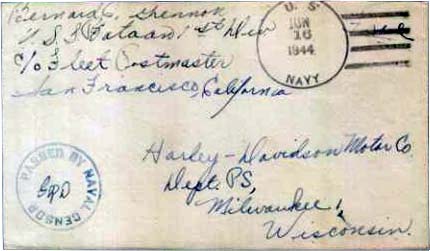 Bernard C. Shennok
U.S.S. Bataan 1st Div
c/o Fleet Postmaster
San Francisco, California
U. S.
JUN
16
1944
NAVY
Free
Harley-Davidson Motor Co.
Dept. PS,
Milwaukee,
Wisconsin.
PASSED BY NAVAL CENSOR